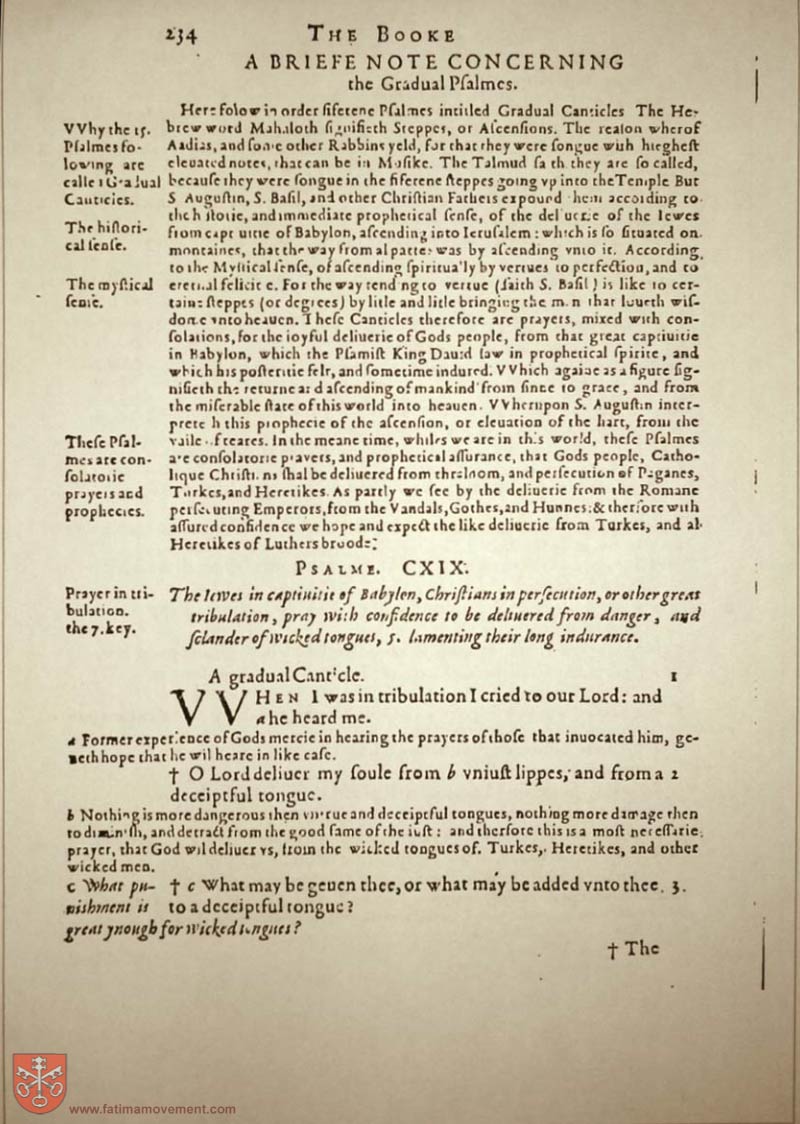 234 THE BOOKE
A BRIEFE NOTE CONCERNING
the Gradual Pſalmes.
Here folow in order fifetene Pſalmes intitled Gradual Canticles The He-
VVhy the 15. brew word Mahaloth ſignifieth Steppes, or Aſcenſions. The reaſon wherof
Pſalmes fo- Aadias, and ſome other Rabbins yeld, for that they were ſongue with hiegheſt
lowing are eleuated notes, that can be in Muſike. The Talmud ſaith they are ſo called,
called Gradual becauſe they were ſongue in the fifetene ſteppes going vp into the Temple But
Canticles. S Auguſtin, S. Baſil, and other Chriſtian Fathers expound them according to
The hiſtori- the hiſtorie, and immediate prophetical ſenſe, of the deliuerie of the Iewes
cal ſenſe. from captiuitie of Babylon, aſcending into Ieruſalem: which is ſo ſituated on
montaines, that the way from al partes was by aſcending vnto it. According
to the Myſtical ſenſe, of aſcending ſpiritually by vertues to perfection, and to
The myſtical eternal felicitie. For the way tending to vertue (ſaith S. Baſil) is like to cer-
ſenſe. taine ſteppes (or degrees) by litle and litle bringing the man that loueth wiſ-
dome vnto heauen. Theſe Canticles therefore are prayers, mixed with con-
ſolations, for the ioyful deliuerie of Gods people, from that great captiuitie
in Babylon, which the Pſamiſt King Dauid ſaw in prophetical ſpirite, and
which his poſteritie felt, and ſometime indured. VVhich againe as a figure ſig-
nifieth the returne and aſcending of mankind from ſinne to grace, and from
the miſerable ſtate of this world into heauen. VVherupon S. Auguſtin inter-
preteth this prophecie of the aſcenſion, or eleuation of the hart, from the
Theſe Pſal- vaile of teares. In the meane time, whiles we are in this world, theſe Pſalmes
mes are con- are conſolatorie prayers, and prophetical aſſurance, that Gods people, Catho-
ſolatorie lique Chriſtians ſhal be deliuered from thraldom, and perſecution of Paganes,
prayers and Turkes, and Heretikes. As partly we ſee by the deliuerie from the Romane
prophecies. perſecuting Emperors, from the Vandals, Gothes, and Hunnes: & therfore with
aſſured confidence we hope and expect the like deliuerie from Turkes, and al
Heretikes of Luthers broode:
PSALME. CXIX.
Prayer in tri- The Iewes in captiuitie of Babylon, Chriſtians in perſecution, or other great
bulation. tribulation, pray with confidence to be deliuered from danger, and
the 7. key. ſclander of wicked tongues, 5. lamenting their long indurance.
A gradual Canticle. 1
VVHEN I was in tribulation I cried to our Lord: and
a he heard me.
a Former experience of Gods mercie in hearing the prayers of thoſe that inuocated him, ge-
neth hope that he wil heare in like caſe.
† O Lord deliuer my ſoule from b vniuſt lippes, and from a 2
deceiptful tongue.
b Nothing is more dangerous then vntrue and deceiptful tongues, nothing more damage then
to diminiſh, and detract from the good fame of the iuſt: and therfore this is a moſt neceſſarie
prayer, that God wil deliuer vs, from the wicked tongues of. Turkes, Heretikes, and other
wicked men.
c What pu- † c What may be geuen thee, or what may be added vnto thee. 3.
niſhment is to a deceiptful tongue?
great ynough for wicked tongues?
† The
www.fatimamovement.com